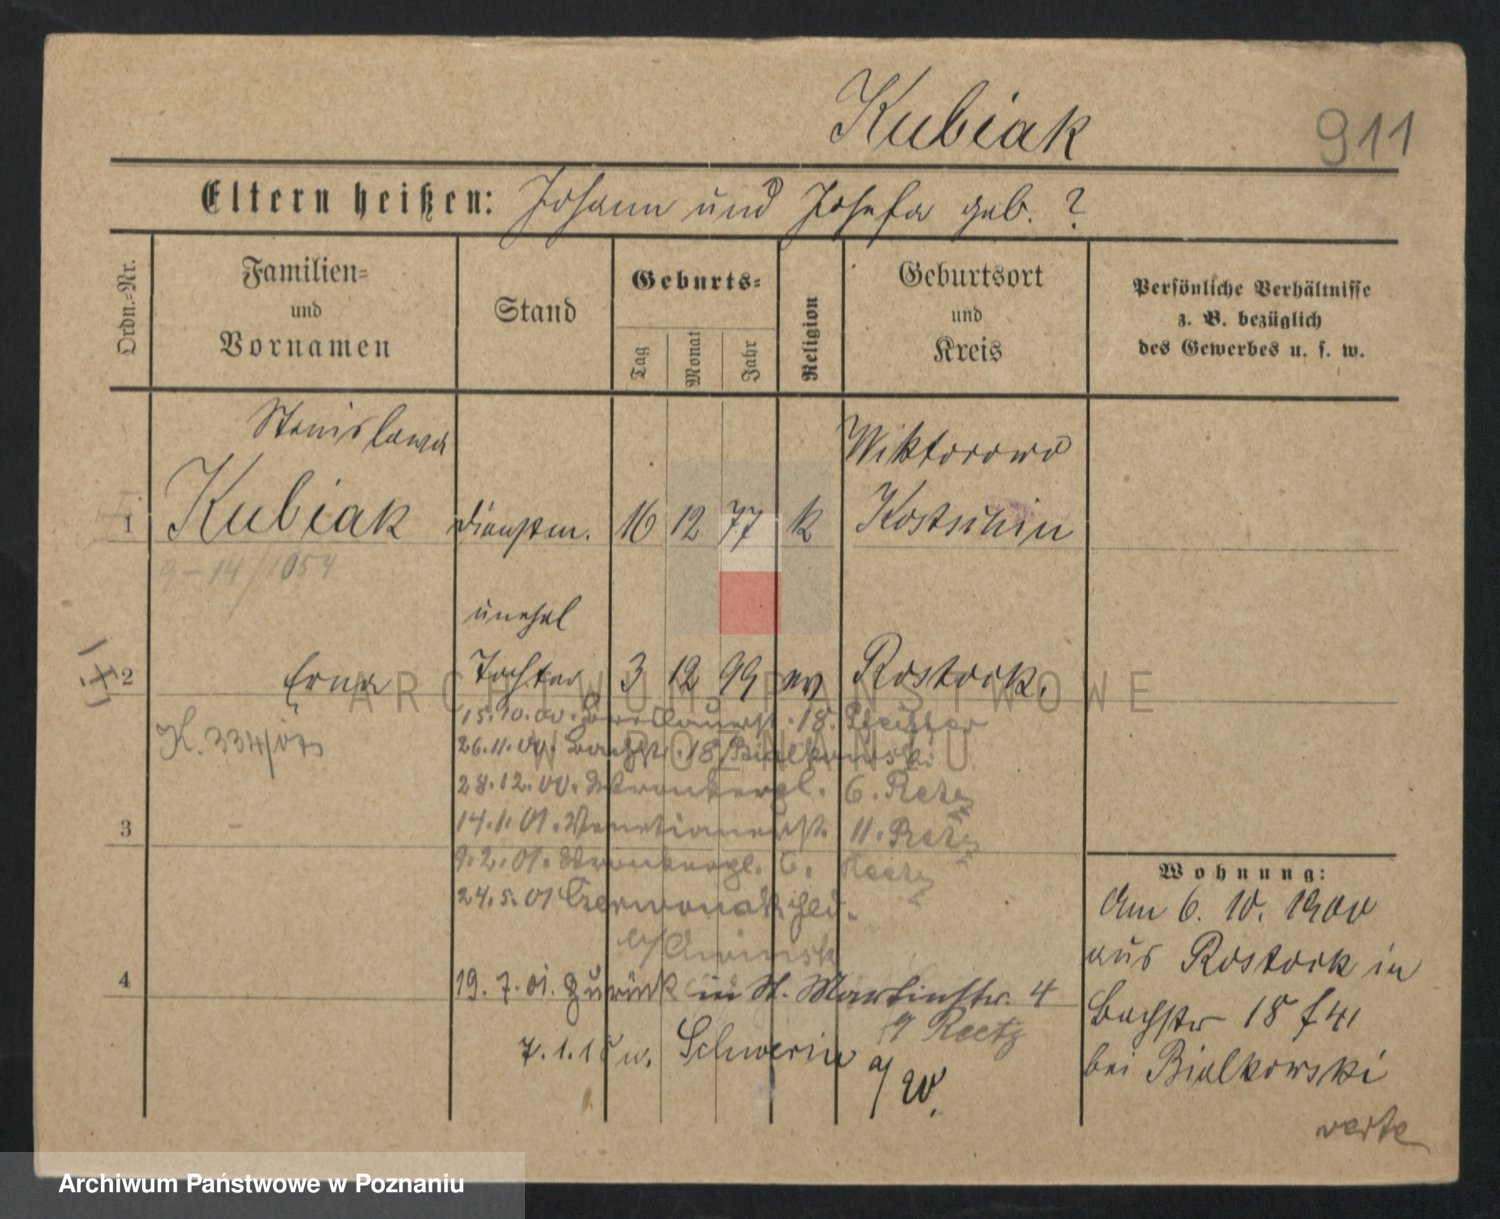 Kubiak
911
Eltern heißen: Johann und Josefa geb. ?
Ordn.-Nr.
Familien-
und
Vornamen
Stand
Geburts-
Tag
Monat
Jahr
Religion
Geburtsort
und
Kreis
Persönliche Verhältnisse
z. B. bezüglich
des Gewerbes u. s. w.
Stanislawa
Wiktorowo
1 Kubiak Dienstm. 16 12 77 k Kostschin
9-14/1054
unehel
2 Erna Tochter 3 12 99 ev Rostock.
K. 334/07
15.10.00. 18.
26.11.00. Bachstr. 18 Bialkowski
28.12.00. Wronkerpl. 6. Reetz
3
14.1.01. Venetianerstr. 11. Reetz
9.2.01. Wronkerpl. 6. Reetz
24.5.01 Czerwonak
4
19.7.01. zurück in St. Martinstr. 4
Reetz
7.1.15 n. Schwerin a/W.
Wohnung:
Am 6. 10. 1900
aus Rostock in
Bachstr 18
bei Bialkowski
verte
ARCHIWUM PAŃSTWOWE
W POZNANIU
Archiwum Państwowe w Poznaniu